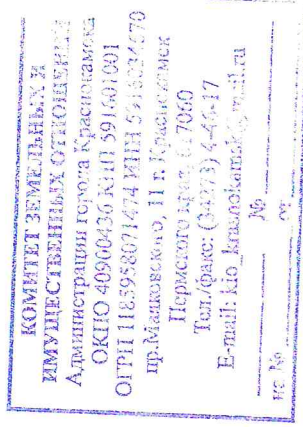 КОМИТЕТ ЗЕМЕЛЬНЫХ И
ИМУЩЕСТВЕННЫХ ОТНОШЕНИЙ
Администрации города Краснокамска
ОКПО 40900436 КПП 591601001
ОГРН 1185958071474 ИНН
пр.Маяковского, 11 г. Краснокамск
Пермского края,
Тел./факс: (34273) 4-46-17
E-mail:
№
на №